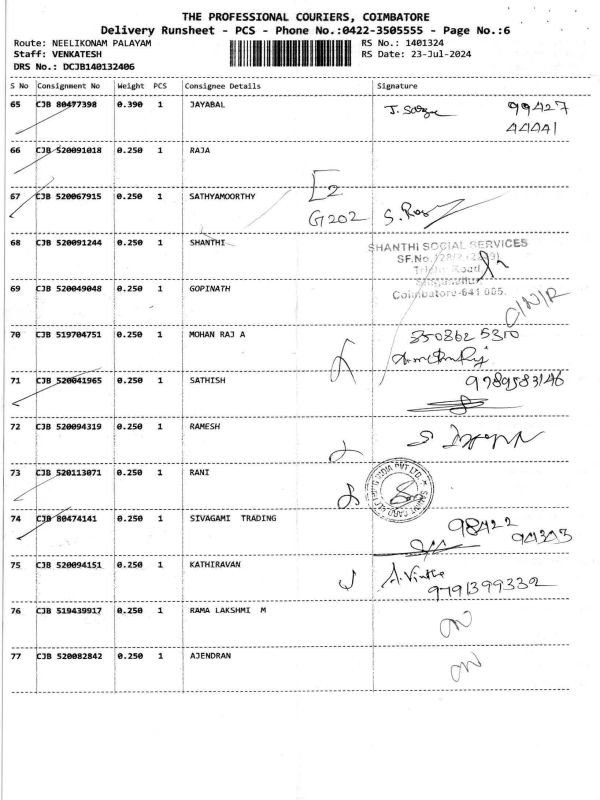 THE PROFESSIONAL COURIERS, COIMBATORE
Delivery Runsheet - PCS - Phone No.:0422-3505555 - Page No.:6
Route: NEELIKONAM PALAYAM RS No.: 1401324
Staff: VENKATESH RS Date: 23-Jul-2024
DRS No.: DCJB140132406
S No Consignment No Weight PCS Consignee Details Signature
65 CJB 80477398 0.390 1 JAYABAL 99427
44441
66 CJB 520091018 0.250 1 RAJA
67 CJB 520067915 0.250 1 SATHYAMOORTHY E2
G202
68 CJB 520091244 0.250 1 SHANTHI SHANTHI SOCIAL SERVICES
SF.No.
Trichy Road
Coimbatore-641 005.
69 CJB 520049048 0.250 1 GOPINATH
C/N/R
70 CJB 519704751 0.250 1 MOHAN RAJ A
71 CJB 520041965 0.250 1 SATHISH 9789583146
72 CJB 520094319 0.250 1 RAMESH
73 CJB 520113071 0.250 1 RANI
74 CJB 80474141 0.250 1 SIVAGAMI TRADING 98422
94343
75 CJB 520094151 0.250 1 KATHIRAVAN
9791399332
76 CJB 519439917 0.250 1 RAMA LAKSHMI M
77 CJB 520082842 0.250 1 AJENDRAN